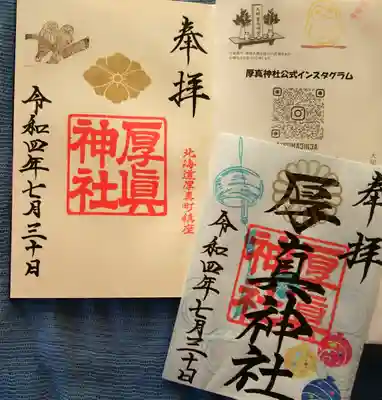 奉拝
厚眞
神社
北海道厚真町鎮座
令和四年七月三十日
厚真神社公式インスタグラム
奉拝
厚真神社
厚眞
神社
令和四年七月三十日